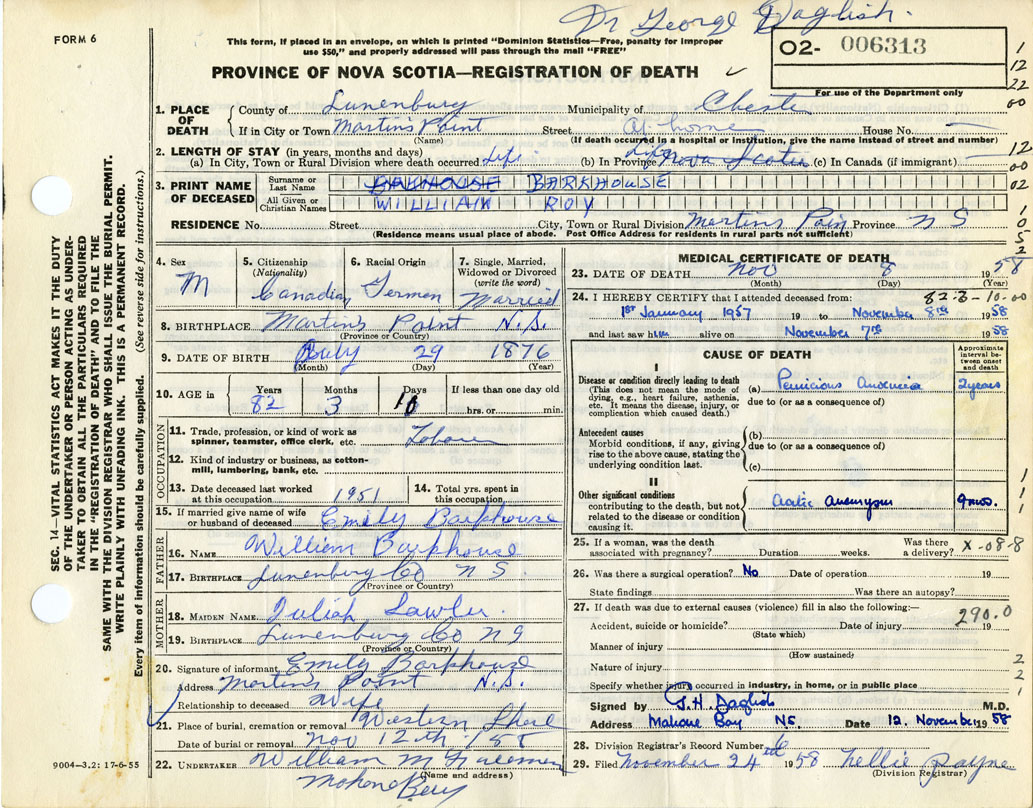 Dr George Daglish.
FORM 6
This form, if placed in an envelope, on which is printed "Dominion Statistics—Free, penalty for improper
use $50," and properly addressed will pass through the mail "FREE"
02- 006313
For use of the Department only
PROVINCE OF NOVA SCOTIA—REGISTRATION OF DEATH
1
12
22
00
1. PLACE OF DEATH County of Lunenburg Municipality of Chester
If in City or Town Martin's Point Street At home House No.
(Name) (If death occurred in a hospital or institution, give the name instead of street and number)
2. LENGTH OF STAY (in years, months and days)
(a) In City, Town or Rural Division where death occurred Life. (b) In Province Life Nova Scotia (c) In Canada (if immigrant)
12
00
3. PRINT NAME OF DECEASED Surname or Last Name BARKHOUSE
All Given or Christian Names WILLIAM ROY
02
RESIDENCE No. Street City, Town or Rural Division Martins Poin Province N S
(Residence means usual place of abode. Post Office Address for residents in rural parts not sufficient)
1
0
5
SEC. 14—VITAL STATISTICS ACT MAKES IT THE DUTY
OF THE UNDERTAKER OR PERSON ACTING AS UNDER-
TAKER TO OBTAIN ALL THE PARTICULARS REQUIRED
IN THE "REGISTRATION OF DEATH" AND TO FILE THE
SAME WITH THE DIVISION REGISTRAR WHO SHALL ISSUE THE BURIAL PERMIT.
WRITE PLAINLY WITH UNFADING INK. THIS IS A PERMANENT RECORD.
Every item of information should be carefully supplied. (See reverse side for instructions.)
4. Sex M
5. Citizenship (Nationality) Canadian
6. Racial Origin German
7. Single, Married, Widowed or Divorced (write the word) Married
8. BIRTHPLACE Martin's Point N.S.
(Province or Country)
9. DATE OF BIRTH July 29 1876
(Month) (Day) (Year)
10. AGE in Years 82 Months 3 Days 10 If less than one day old hrs. or min.
OCCUPATION
11. Trade, profession or kind of work as
spinner, teamster, office clerk, etc. Laborer
12. Kind of industry or business, as cotton-
mill, lumbering, bank, etc.
13. Date deceased last worked
at this occupation 1951
14. Total yrs. spent in
this occupation
15. If married give name of wife
or husband of deceased Emily Barkhouse
FATHER
16. NAME William Barkhouse
17. BIRTHPLACE Lunenburg Co N S
(Province or Country)
MOTHER
18. MAIDEN NAME Juliah Lawler
19. BIRTHPLACE Lunenburg Co N S
(Province or Country)
20. Signature of informant Emily Barkhouse
Address Martin's Point N.S.
Relationship to deceased Wife
21. Place of burial, cremation or removal Western Shore
Date of burial or removal Nov 12th /58
22. UNDERTAKER William M
(Name and address)
Mahone Bay
9004—3.2: 17-6-55
MEDICAL CERTIFICATE OF DEATH
23. DATE OF DEATH Nov 8 1958
(Month) (Day) (Year)
24. I HEREBY CERTIFY that I attended deceased from: 82-3-10-00
1st January 1957 19 to November 8th 1958
and last saw him alive on November 7th 1958
CAUSE OF DEATH
Approximate interval between onset and death
I
Disease or condition directly leading to death
(This does not mean the mode of
dying, e.g., heart failure, asthenia,
etc. It means the disease, injury, or
complication which caused death.)
(a) Pernicious Anaemia 2 years
due to (or as a consequence of)
Antecedent causes
Morbid conditions, if any, giving
rise to the above cause, stating the
underlying condition last.
(b)
due to (or as a consequence of)
(c)
II
Other significant conditions
contributing to the death, but not
related to the disease or condition
causing it.
Aortic Aneurysm 9 mos.
1
1
1
25. If a woman, was the death
associated with pregnancy? Duration weeks. Was there
a delivery? X-08-8
26. Was there a surgical operation? No Date of operation 19
State findings Was there an autopsy?
27. If death was due to external causes (violence) fill in also the following:—
290.0
Accident, suicide or homicide? Date of injury 19
(State which)
Manner of injury
(How sustained)
Nature of injury
Specify whether injury occurred in industry, in home, or in public place
2
2
1
Signed by G.H. Daglish M.D.
Address Mahone Bay N.S. Date 12. November 1958
28. Division Registrar's Record Number
29. Filed November 24 1958 Nellie Payne
(Division Registrar)